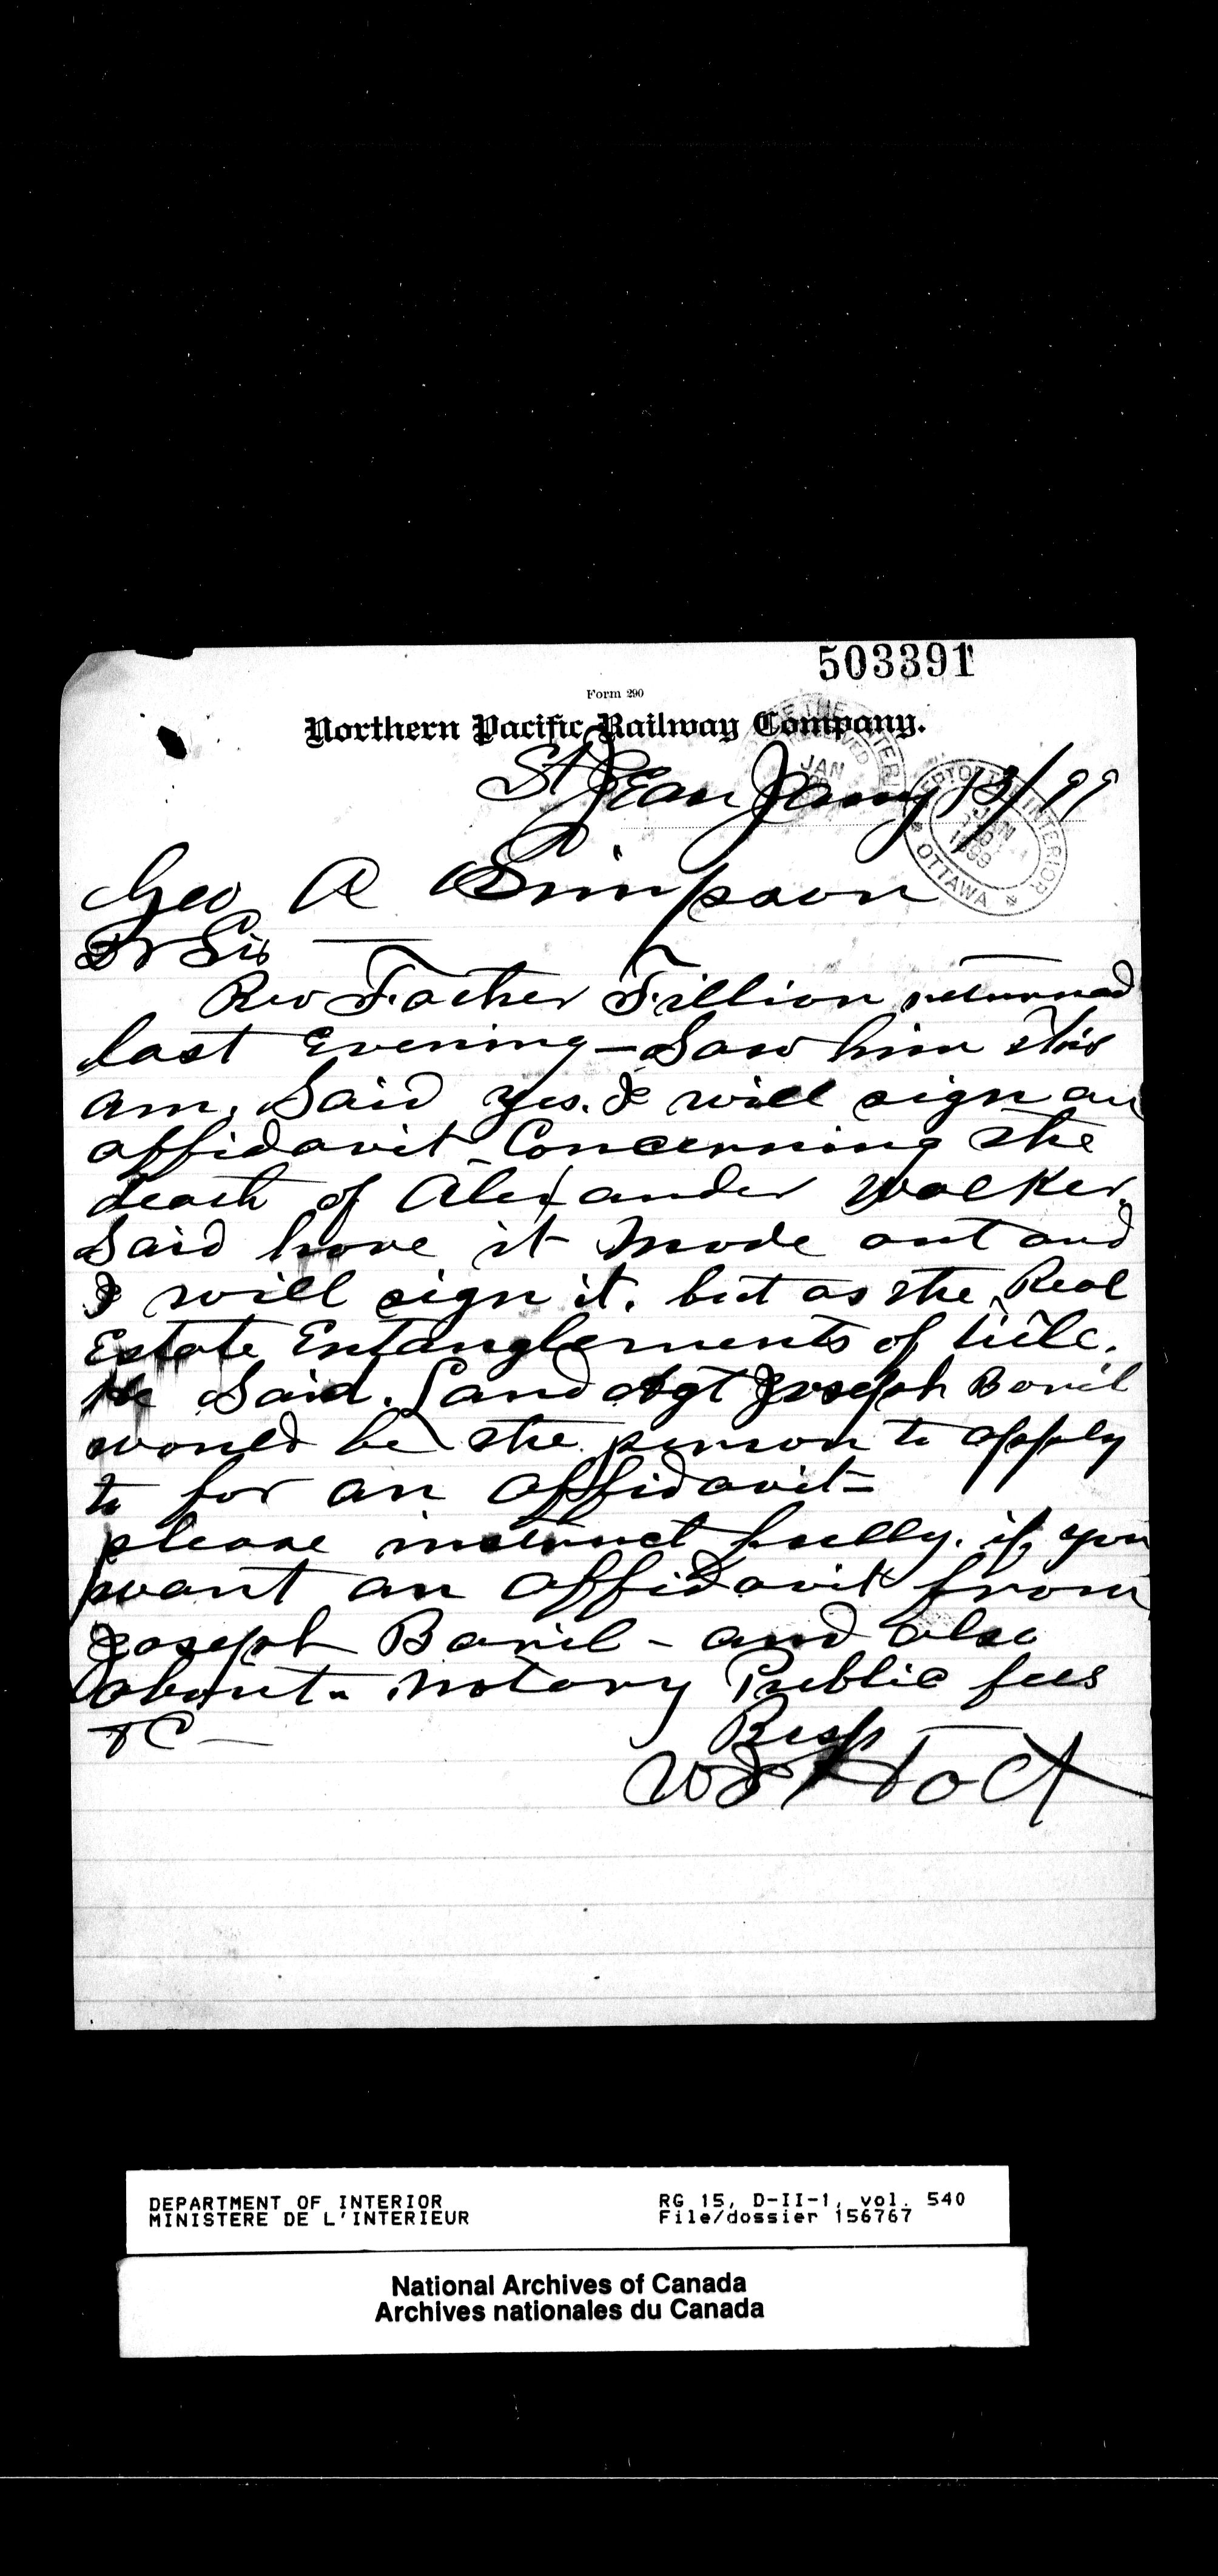 503391
Form 290
Northern Pacific Railway Company.
St Jean Jany 13/99
JAN
DEPT OF THE INTERIOR
JAN
1899
OTTAWA
Geo A Simpson
Dr Sir
Rev Father Fillion returned
last Evening - Saw him this
am, Said yes. I will sign an
affidavit - Concerning the
death of Alexander Walker.
Said have it Made out and
I will sign it. but as the Real
Estate Entanglements of title.
He Said. Land Agt Joseph Baril
would be the person to apply
to for an affidavit -
please instruct fully. if you
want an affidavit from
Joseph Baril - and also
about - Notary Public fees
&C -
Resp
DEPARTMENT OF INTERIOR
MINISTERE DE L'INTERIEUR
RG 15, D-II-1, vol. 540
File/dossier 156767
National Archives of Canada
Archives nationales du Canada